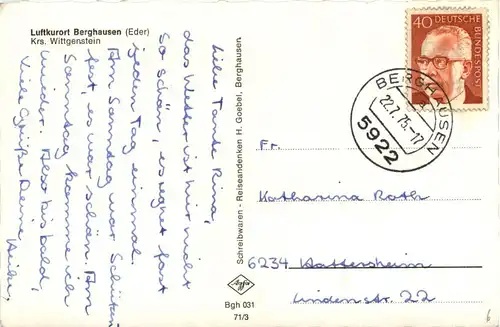 Luftkurort Berghausen (Eder)
Krs. Wittgenstein
Liebe Tante Rina,
das Wetter ist hier nicht
so schön, es regnet fast
jeden Tag einmal.
Am Sonntag war Schützen
fest, es war schön. Am
Sonntag komme ich
wieder. Also bis bald,
Viele Grüße Deine
Schreibwaren - Reiseandenken H. Goebel, Berghausen
Agfa
Bgh 031
71/3
40 DEUTSCHE
BUNDESPOST
BERGHAUSEN
22.7.75.-17
5922
Fr.
Katharina Roth
6234 Hattersheim
Lindenstr. 22
6